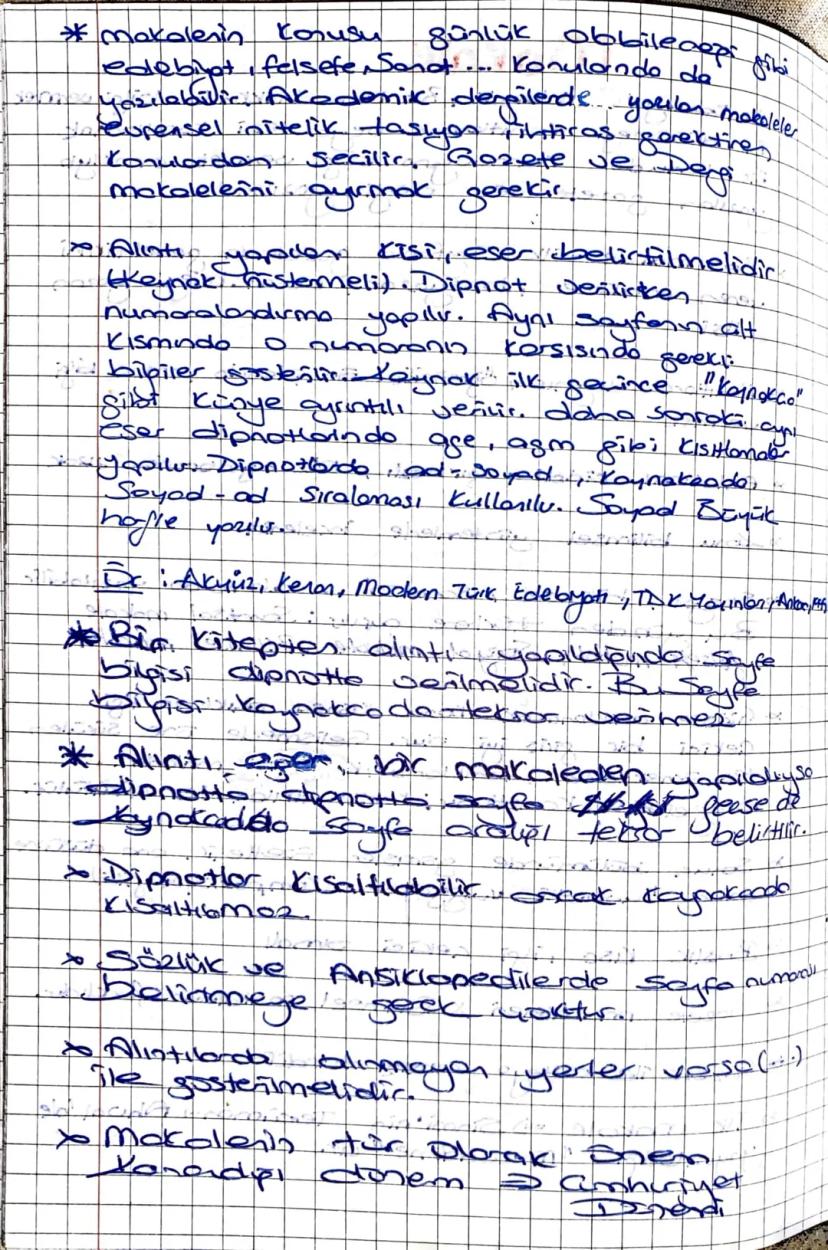 * Makalenin konusu günlük olabileceği gibi
edebiyat, felsefe, Sanat... konularında da
yazılabilir. Akademik dergilerde yazılan makaleler
evrensel nitelik taşıyan ihtisas gerektiren
konulardan seçilir. Gazete ve Dergi
makalelerini ayırmak gerekir.
* Alıntı yapılan kişi, eser belirtilmelidir
(Kaynak göstermeli). Dipnot verilirken
numaralandırma yapılır. Aynı sayfanın alt
kısmında o numaranın karşısında gerekli
bilgiler gösterilir. Kaynak ilk geçince "kaynakça"
gibi künye ayrıntılı verilir. daha sonraki aynı
eser dipnotlarında age, agm gibi kısıtlamalar
yapılır. Dipnotlarda ad-soyad, kaynakçada,
Soyad-ad sıralaması kullanılır. Soyad Büyük
harfle yazılır.
Ör: Akyüz, Kenan, Modern Türk Edebiyatı, TDK Yayınları, Ankara,
* Bir kitaptan alıntı yapıldığında sayfa
bilgisi dipnotta verilmelidir. Bu Sayfa
bilgisi kaynakçada tekrar verilmez
* Alıntı eğer, bir makaleden yapıldıysa
dipnotta dipnotta sayfa geçse de
kaynakçada sayfa aralığı tekrar belirtilir.
* Dipnotlar kısaltılabilir ancak kaynakçada
kısaltılamaz.
* Sözlük ve Ansiklopedilerde sayfa numarası
belirtmeye gerek yoktur.
* Alıntılarda alınmayan yerler varsa (...)
ile gösterilmelidir.
* Makalenin tür olarak önem
kazandığı dönem ⇒ Cumhuriyet
Dönemi